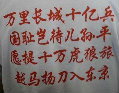 万里长城十亿兵
国耻岂待儿孙平
愿提十万虎狼旅
越马扬刀入东京